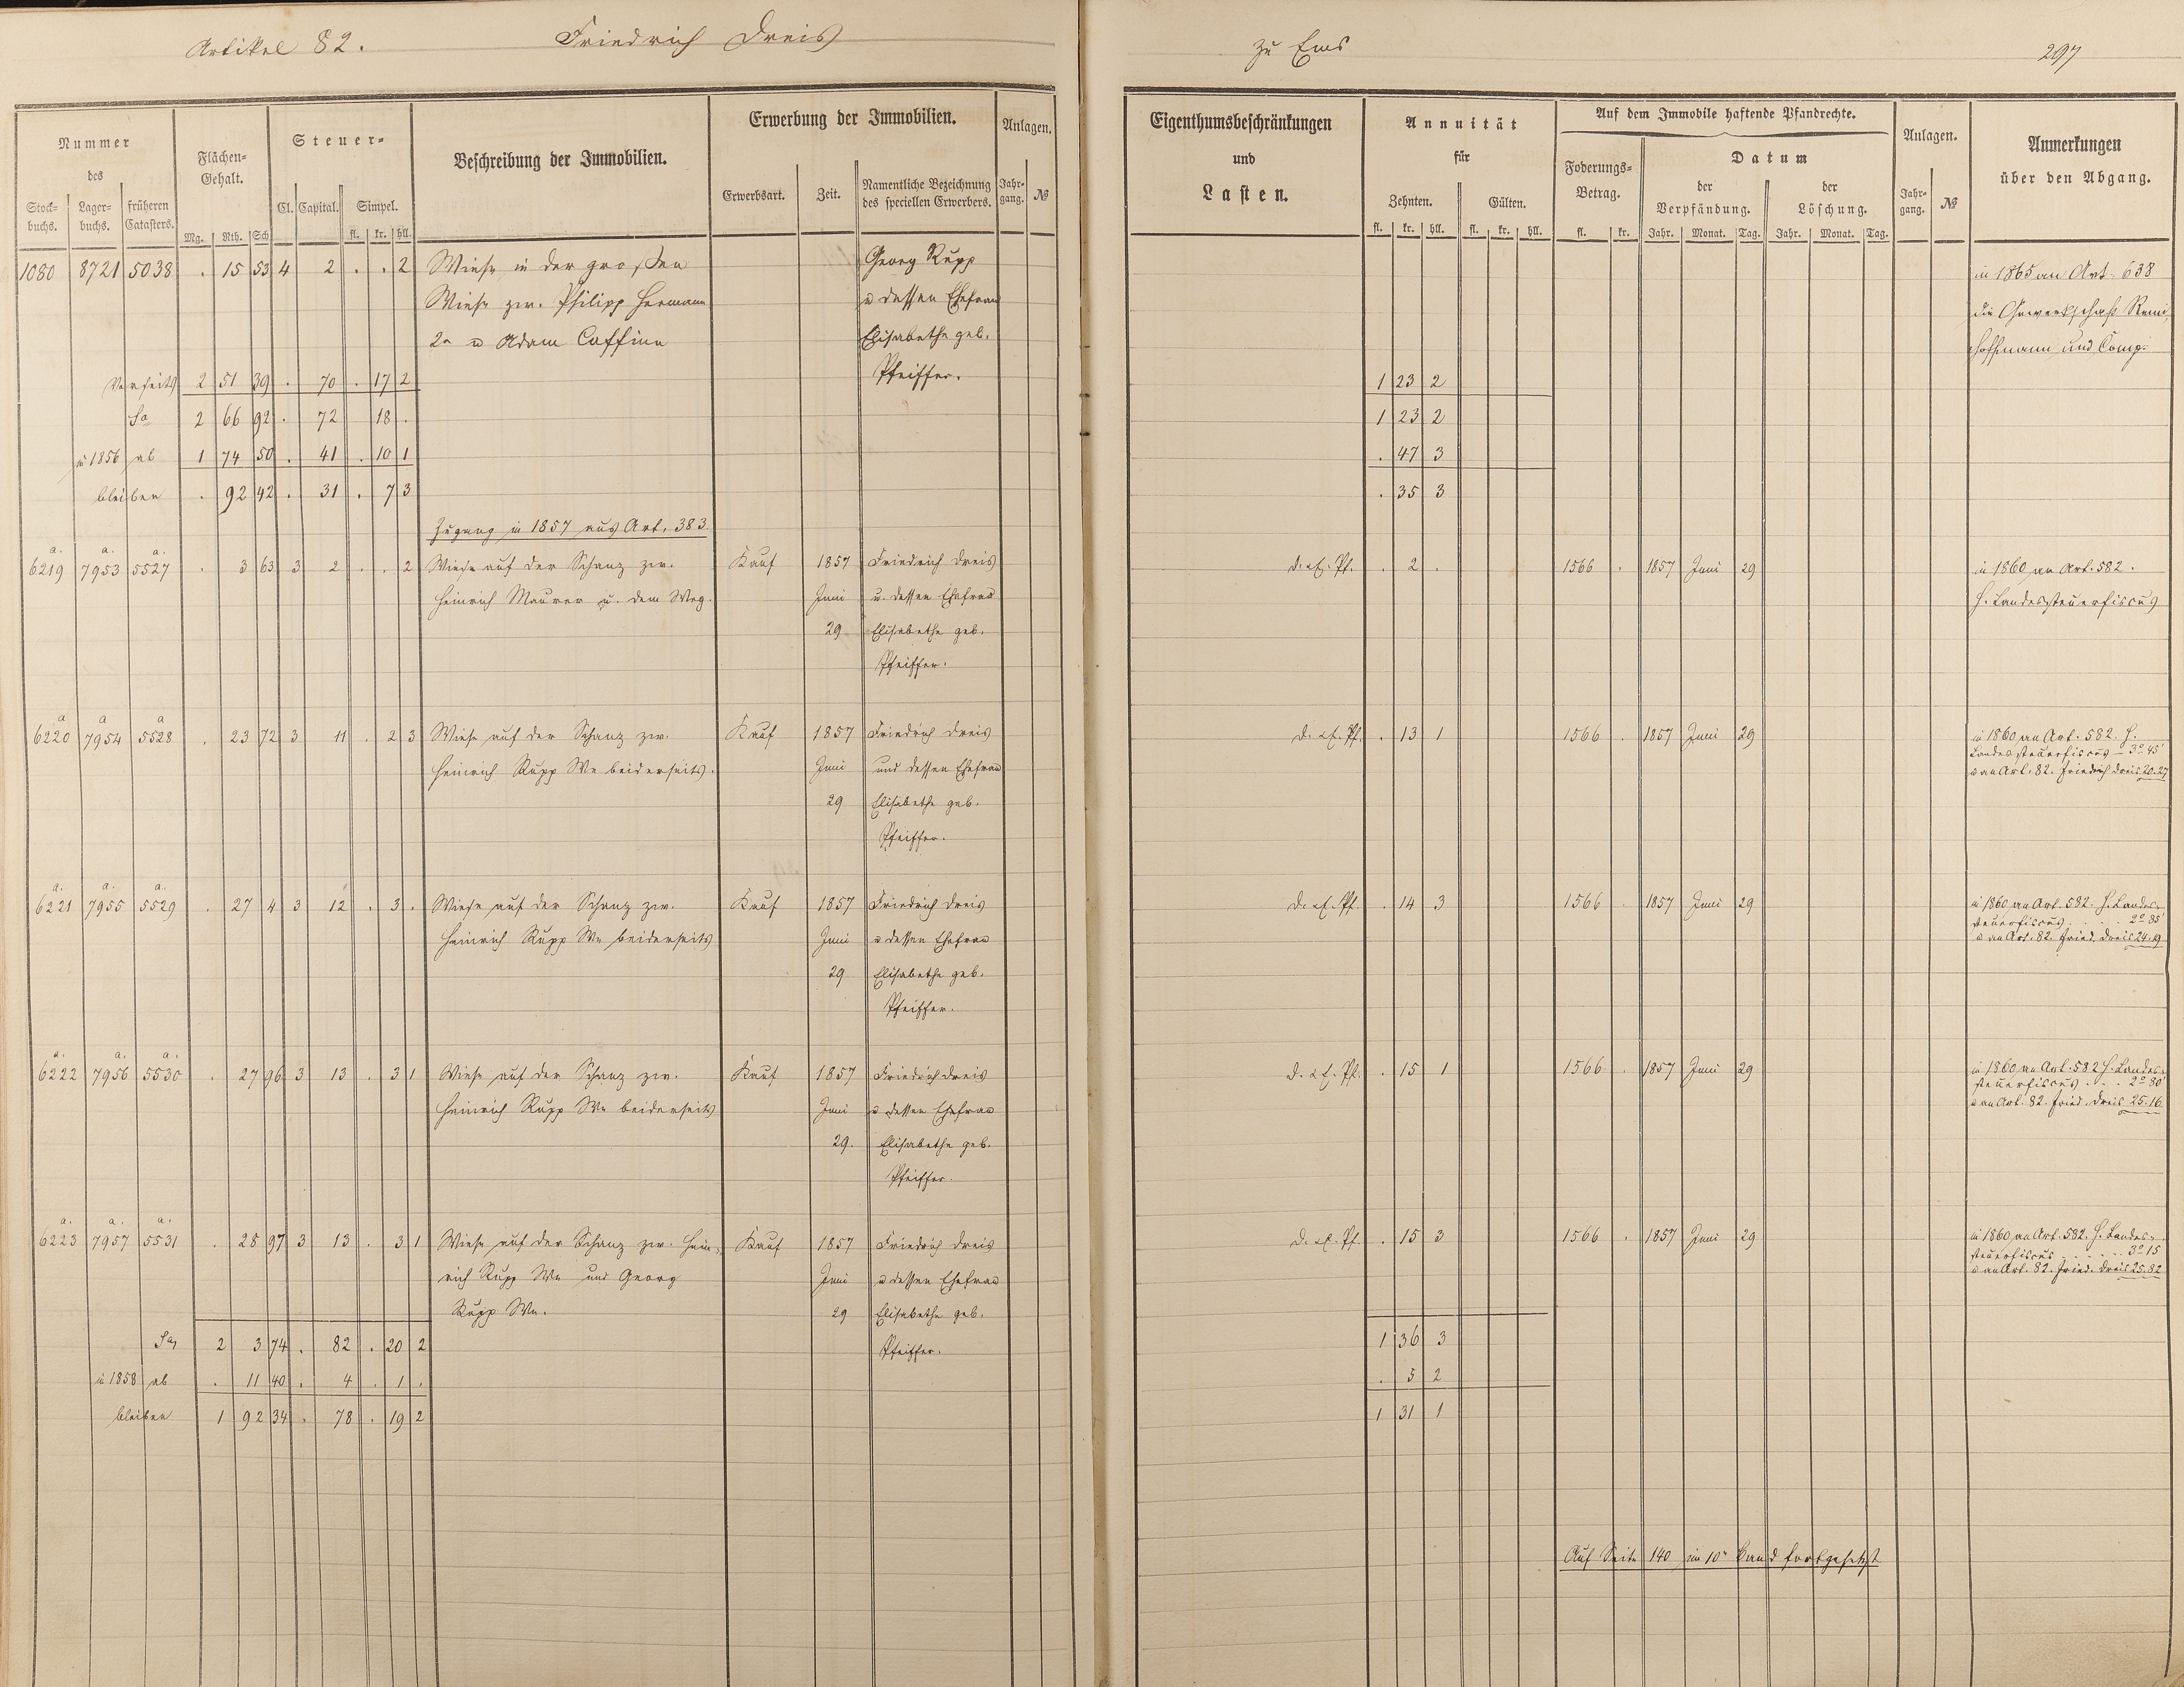 Artikel 82. Friedrich Dreis zu Ems 297
Nummer des
Stock= buchs. Lager= buchs. früheren Catasters.
Flächen= Gehalt.
Mg. Rth. Sch.
Steuer=
Cl. Capital. Simpel.
fl. kr. hll.
Beschreibung der Immobilien.
Erwerbung der Immobilien.
Erwerbsart. Zeit. Namentliche Bezeichnung des speciellen Erwerbers.
Anlagen.
Jahr= gang. №
Eigenthumsbeschränkungen
und
Lasten.
Annuität
für
Zehnten. Gülten.
fl. kr. hll. fl. kr. hll.
Auf dem Immobile haftende Pfandrechte.
Foderungs= Betrag.
fl. kr.
Datum
der Verpfändung. der Löschung.
Jahr. Monat. Tag. Jahr. Monat. Tag.
Anlagen.
Jahr= gang. №
Anmerkungen
über den Abgang.
1080 8721 5038 . 15 53 4 2 . . 2 Wiese in der großen Georg Rupp in 1865 an Art. 638
Wiese zw. Philipp Hermann u dessen Ehefrau die Gewerkschaft Remi,
2r u Adam Caffine Elisabethe geb. Hoffmann und Comp.
Vorseits 2 51 39 . 70 . 17 2 Pfeiffer. 1 23 2
Sa 2 66 92 . 72 18 . 1 23 2
in 1856 ab 1 74 50 . 41 . 10 1 . 47 3
bleiben . 92 42 . 31 . 7 3 . 35 3
Zugang in 1857 aus Art. 383.
a. a. a.
6219 7953 5527 . 3 63 3 2 . . 2 Wiese auf der Schanz zw. Kauf 1857 Friedrich Dreis d. u. E. Pf. . 2 . 1566 . 1857 Juni 29 in 1860 an Art. 582.
Heinrich Maurer u. dem Weg. Juni u. dessen Ehefrau H. Landessteuerfiscus
29 Elisabethe geb.
Pfeiffer.
a a a
6220 7954 5528 . 23 72 3 11 . 2 3 Wiese auf der Schanz zw. Kauf 1857 Friedrich Dreis d. u. E. Pf. . 13 1 1566 . 1857 Juni 29 in 1860 an Art. 582. H.
Landessteuerfiscus – 3° 45'
Heinrich Rupp We beiderseits. Juni und dessen Ehefrau u an Art. 82. Friedrich Dreis 20. 27
29 Elisabethe geb.
Pfeiffer.
a. a. a.
6221 7955 5529 . 27 4 3 12 . 3 . Wiese auf der Schanz zw. Kauf 1857 Friedrich Dreis d. u. E. Pf. . 14 3 1566 1857 Juni 29 in 1860 an Art. 582. H. Landes=
steuerfiscus . . . . 2° 85'
Heinrich Rupp We beiderseits Juni u dessen Ehefrau u an Art. 82. Fried. Dreis 24. 19
29 Elisabethe geb.
Pfeiffer.
a. a. a.
6222 7956 5530 . 27 96 3 13 . 3 1 Wiese auf der Schanz zw. Kauf 1857 Friedrich Dreis d. u. E. Pf. . 15 1 1566 . 1857 Juni 29 in 1860 an Art. 582 H. Landes=
steuerfiscus . . . 2° 80'
Heinrich Rupp We beiderseits Juni u dessen Ehefrau u an Art. 82. Fried. Dreis 25. 16
29. Elisabethe geb.
Pfeiffer.
a. a. a.
6223 7957 5531 . 28 97 3 13 . 3 1 Wiese auf der Schanz zw. Hein= Kauf 1857 Friedrich Dreis d. u. E. Pf. . 15 3 1566 . 1857 Juni 29 in 1860 an Art. 582. H. Landes=
steuerfiscus . . . . . 3° 15
rich Rupp We und Georg Juni u dessen Ehefrau u an Art. 82. Fried. Dreis 25. 82
Rupp We. 29 Elisabethe geb.
Sa 2 3 74 . 82 . 20 2 Pfeiffer. 1 36 3
in 1858 ab . 11 40 . 4 . 1 . . 5 2
bleiben 1 92 34 . 78 . 19 2 1 31 1
Auf Seite 140 im 10r Band fortgesetzt